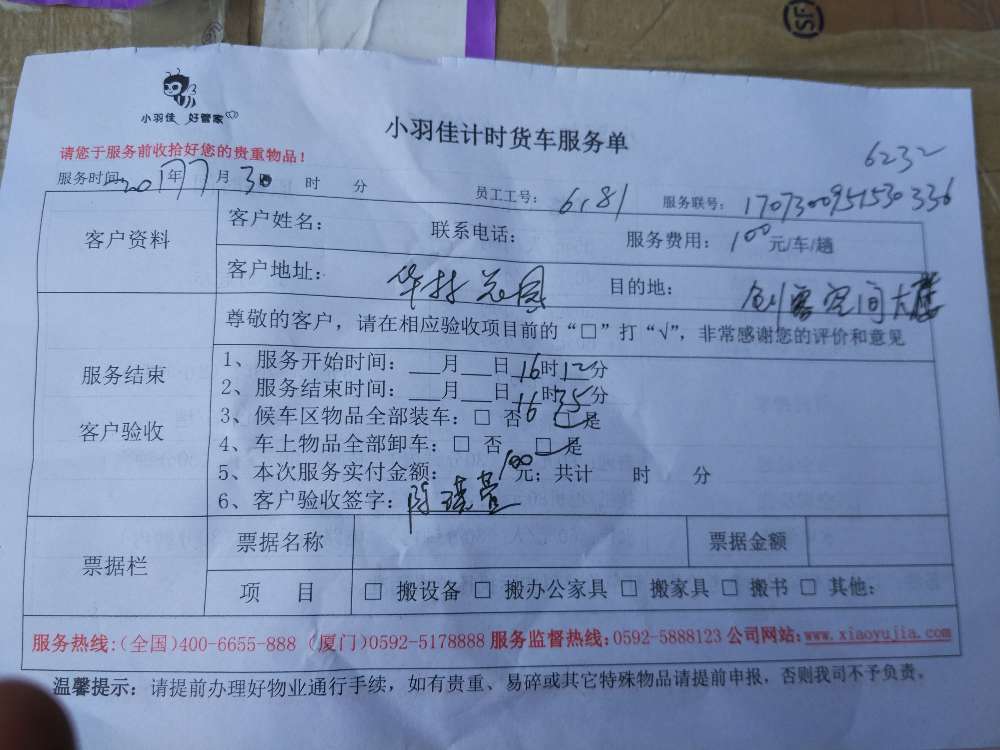 小羽佳 好管家
小羽佳计时货车服务单
6232
请您于服务前收拾好您的贵重物品！
服务时间 2017年7月30 时 分 员工工号： 6181 服务联号： 1707300951530336
客户资料
客户姓名： 联系电话： 服务费用： 100元/车/趟
客户地址： 华林花园 目的地： 创客空间大楼
服务结束
客户验收
尊敬的客户，请在相应验收项目前的“□”打“√”，非常感谢您的评价和意见
1、服务开始时间：___月___日16时12分
2、服务结束时间：___月___日16时35分
3、候车区物品全部装车：□ 否 □是
4、车上物品全部卸车：□ 否 □是
5、本次服务实付金额： 100元；共计 时 分
6、客户验收签字：
票据栏
票据名称 票据金额
项 目 □ 搬设备 □ 搬办公家具 □ 搬家具 □ 搬书 □ 其他：
服务热线：(全国)400-6655-888 (厦门)0592-5178888 服务监督热线：0592-5888123 公司网站：www.xiaoyujia.com
温馨提示：请提前办理好物业通行手续，如有贵重、易碎或其它特殊物品请提前申报，否则我司不予负责。